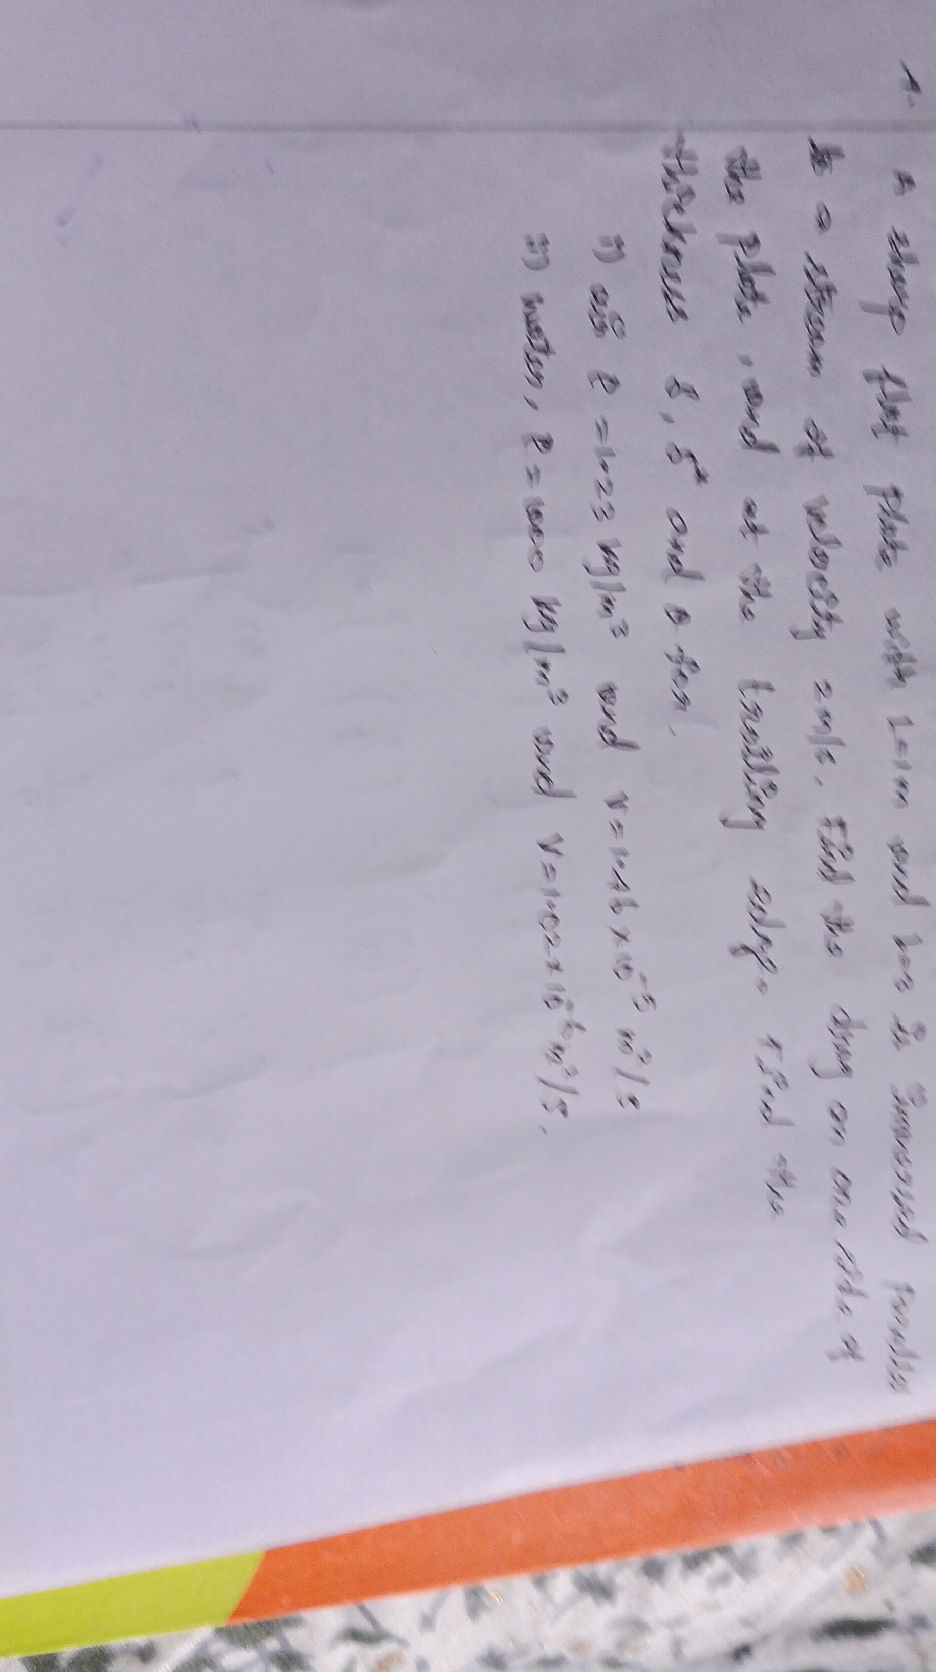 A. A sharp flat plate with L=1m and b=3 is immersed parallel
to a stream of velocity 2m/s. Find the drag on one side of
the plate, and at the trailing edge. Find the
thickness δ, δ* and θ for.
i) air ρ = 1.23 kg/m³ and ν = 1.46 × 10⁻⁵ m²/s
ii) water, ρ = 1000 kg/m³ and ν = 1.02 × 10⁻⁶ m²/s.